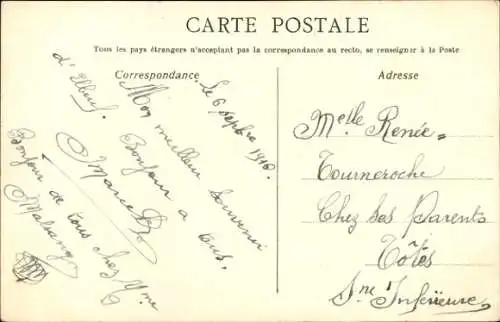 CARTE POSTALE
Tous les pays étrangers n'acceptant pas la correspondance au recto, se renseigner à la Poste
Correspondance
Adresse
Le 6 1916.
Mon meilleur Souvenir
d'Elbeuf.
Bonjour a tous.
Marcel
Bonjour de tous chez Mme
Melle Renée
Tourneroche
Chez Ses Parents
Tôtes
Sne Inférieure